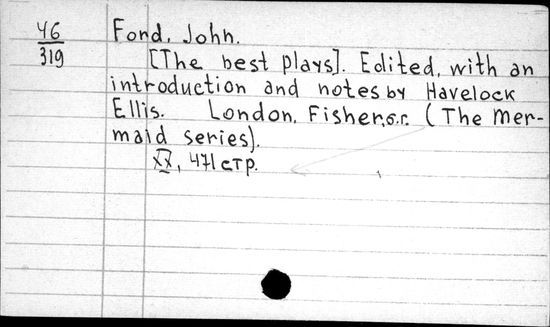 46
319
Ford, John.
[The best plays]. Edited, with an
introduction and notes by Havelock
Ellis. London, Fisher, б.г. (The Mer-
maid series).
XX, 471 стр.